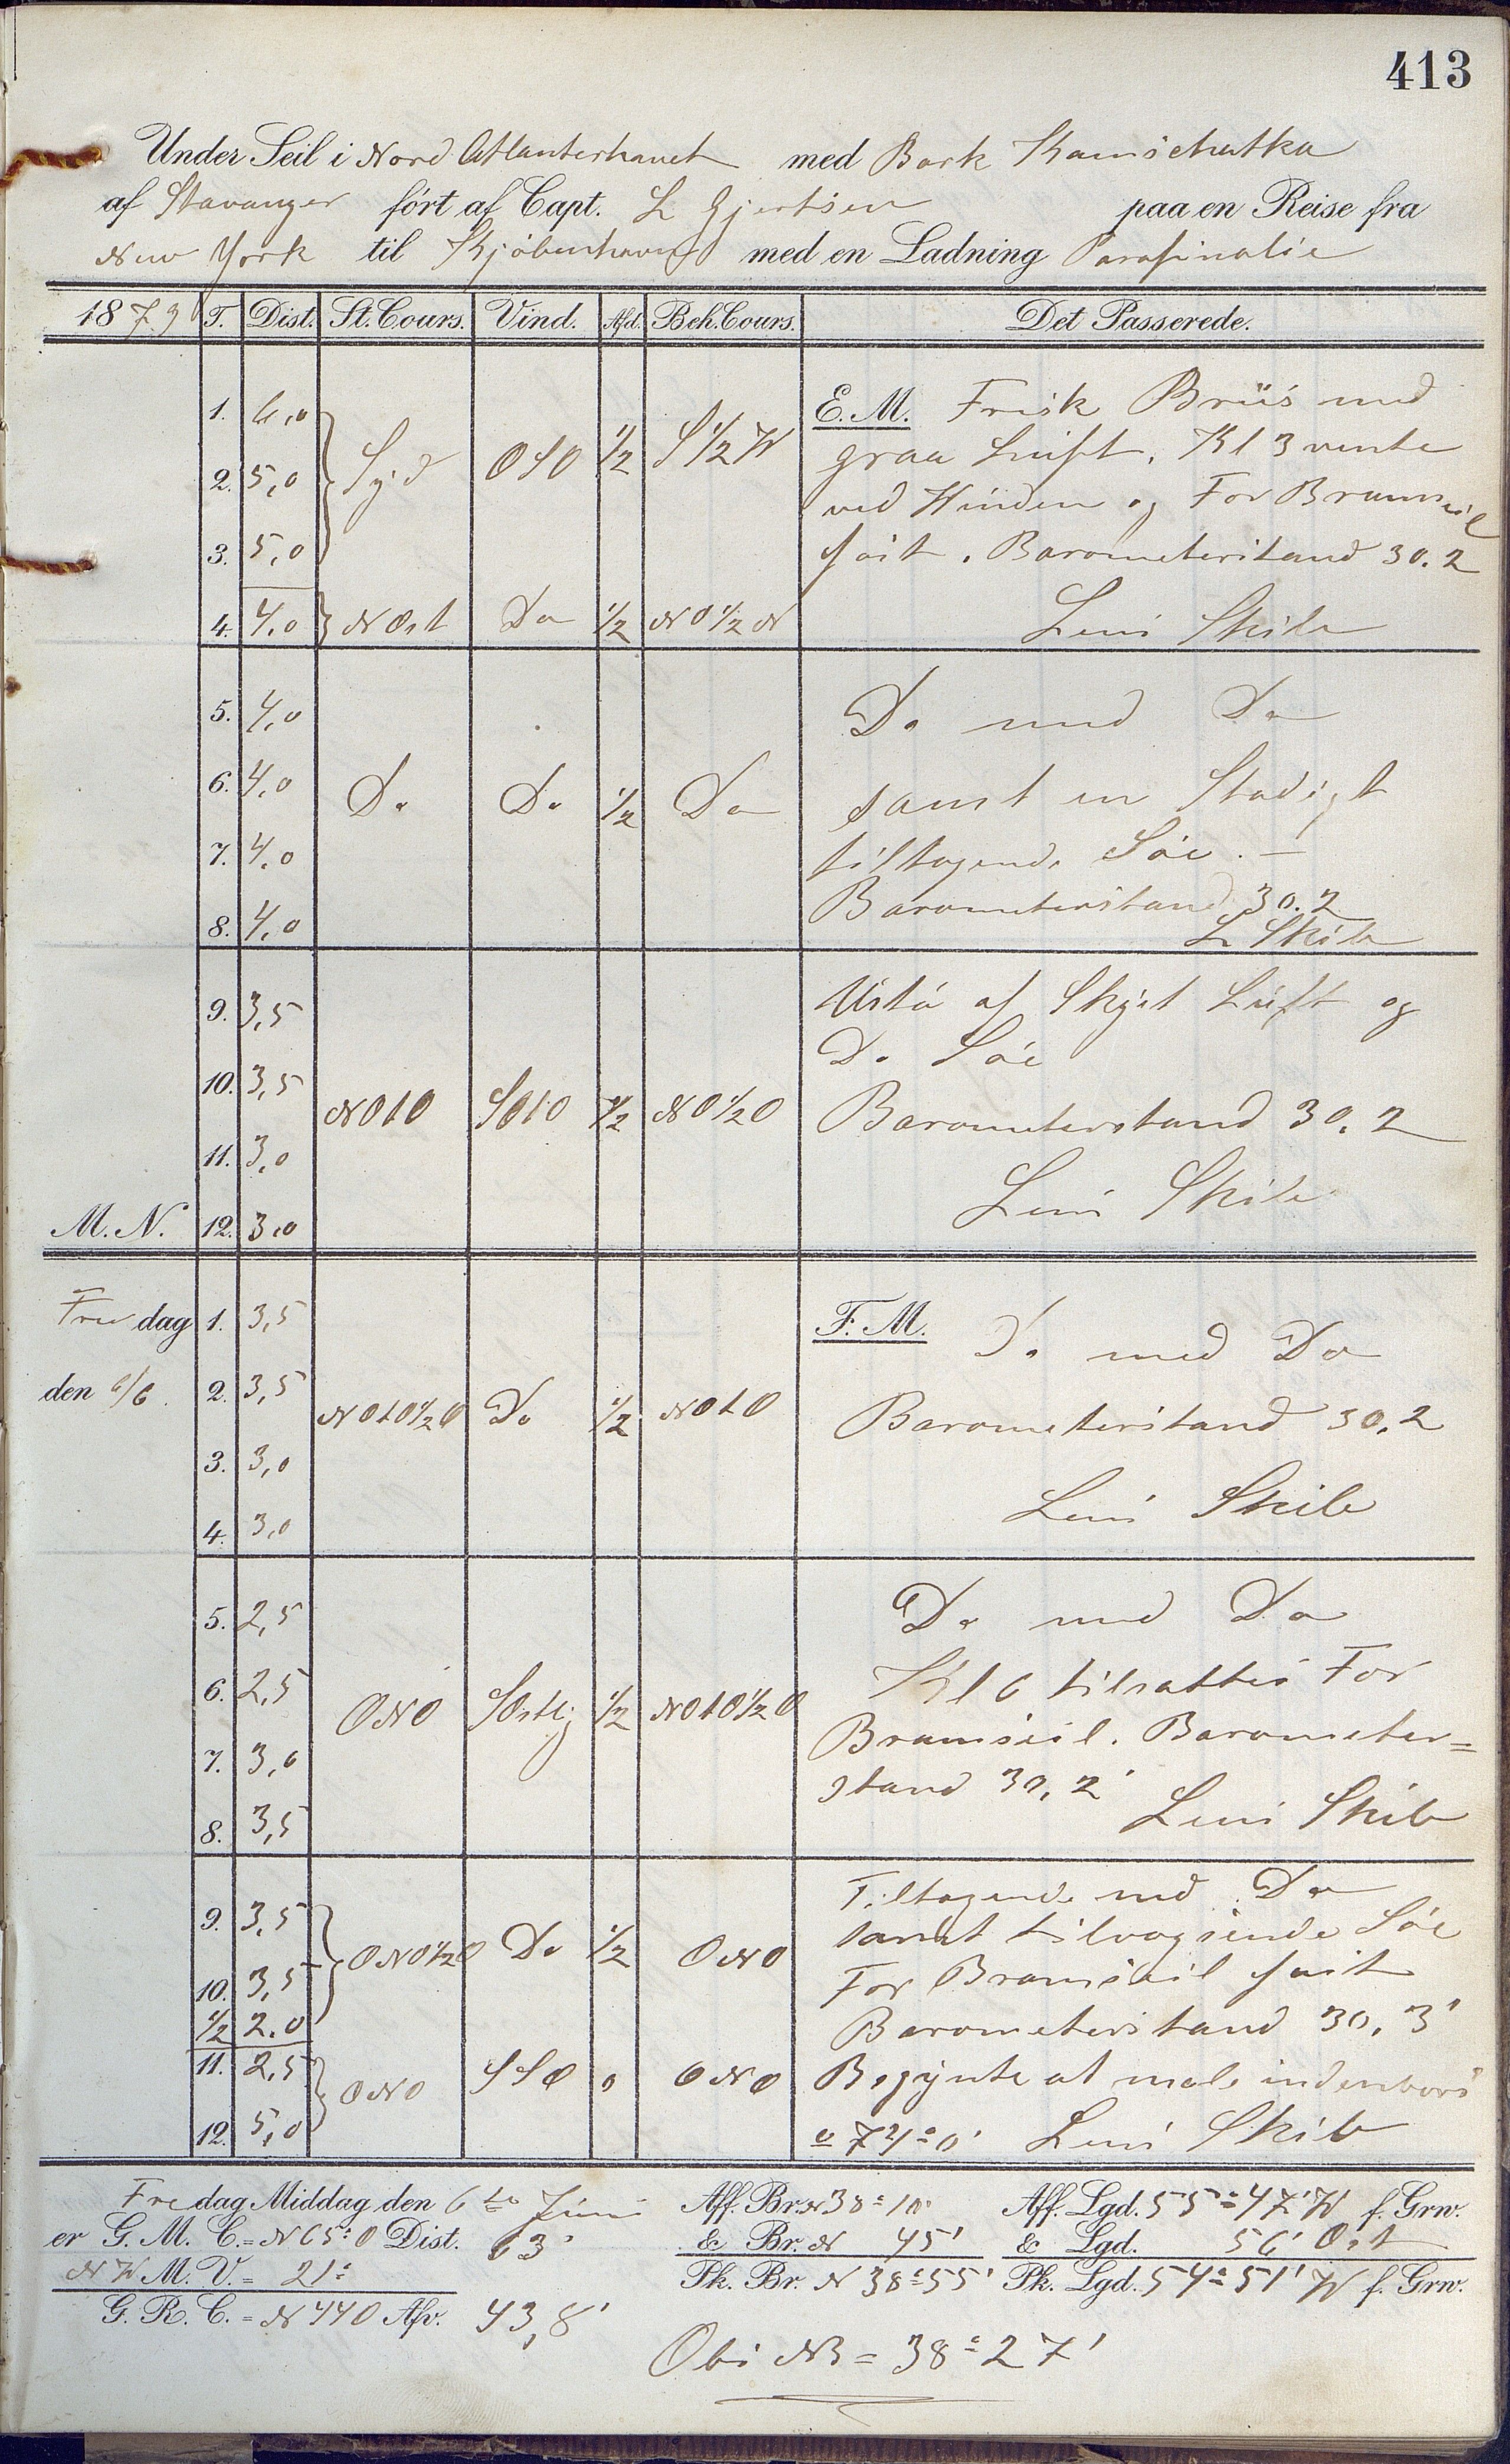 413
Under Seil i Nord Atlanterhavet med Bark Kamschatka
af Stavanger ført af Capt. L Gjertsen paa en Reise fra
New York til Kjøbenhavn med en Ladning Parafinolie
1879 T. Dist. St. Cours. Vind. Afd. Beh. Cours. Det Passerede.
1. 6,0 E. M. Frisk Briis med
2. 5,0 Syd OSO 1/2 S 1/2 W graa Luft. Kl 3 vente
ved Vinden og For Bramseil
3. 5,0 fast. Barometerstand 30.2
4. 4,0 NOst Do 1/2 NO 1/2 N Lens Skib
5. 4,0 Do med Do
6. 4,0 Do Do 1/2 Do samt en Stadigt
7. 4,0 tiltagende Søe. –
Barometerstand 30.2
8. 4,0 L Skib
9. 3,5 Ustø af Skyet Luft og
Do Søe
10. 3,5 NOtO SOtO 1/2 NO 1/2 O Barometerstand 30,2
11. 3,0
M. N. 12. 3,0 Lens Skib
Fredag 1. 3,5 F. M. Do med Do
den 6/6. 2. 3,5 NOtO 1/2 O Do 1/2 NOtO Barometerstand 30,2
3. 3,0
4. 3,0 Lens Skib
5. 2,5 Do med Do
6. 2,5 ONO SOstlig 1/2 NOtO 1/2 O Kl 6 tilsattes For
7. 3,0 Bramseil. Barometer=
stand 30,2'
8. 3,5 Lens Skib
9. 3,5 Tiltagende med Do
ONO 1/2 O Do 1/2 ONO samt tilvogsende Søe
10. 3,5 For Bramseil fast
1/2 2.0 Barometerstand 30,3'
11. 2,5 ONO SSO 0 ONO Begynte at male indenbors
12. 5,0 Lens Skib
Fredag Middag den 6te Juni Aff. Br. N 38° 10' Aff. Lgd. 55° 47' W f. Grw.
er G. M. C. = N 65° O Dist. 63' & Br. N 45' & Lgd. 56' Ost
NW M. V. = 21° Pk. Br. N 38° 55' Pk. Lgd. 54° 51' W f. Grw.
G. R. C. = N 44 O Afv. 43,8'
Obs NB = 38° 27'